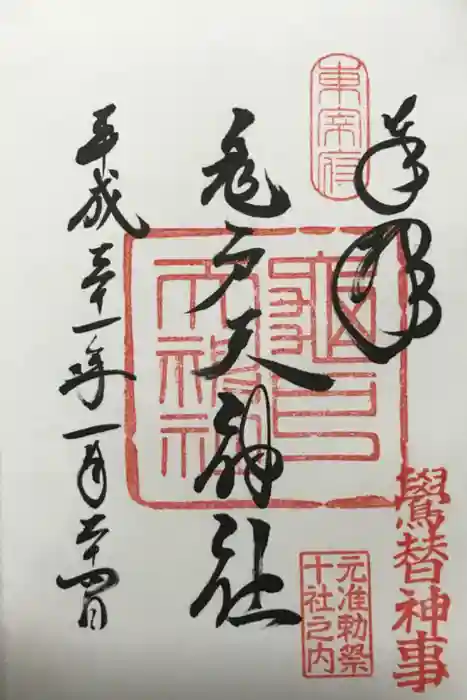 奉拝
東宰府
亀戸天神社
亀戸天神社
鷽替神事
元准勅祭
十社之内
平成三十一年一月二十四日